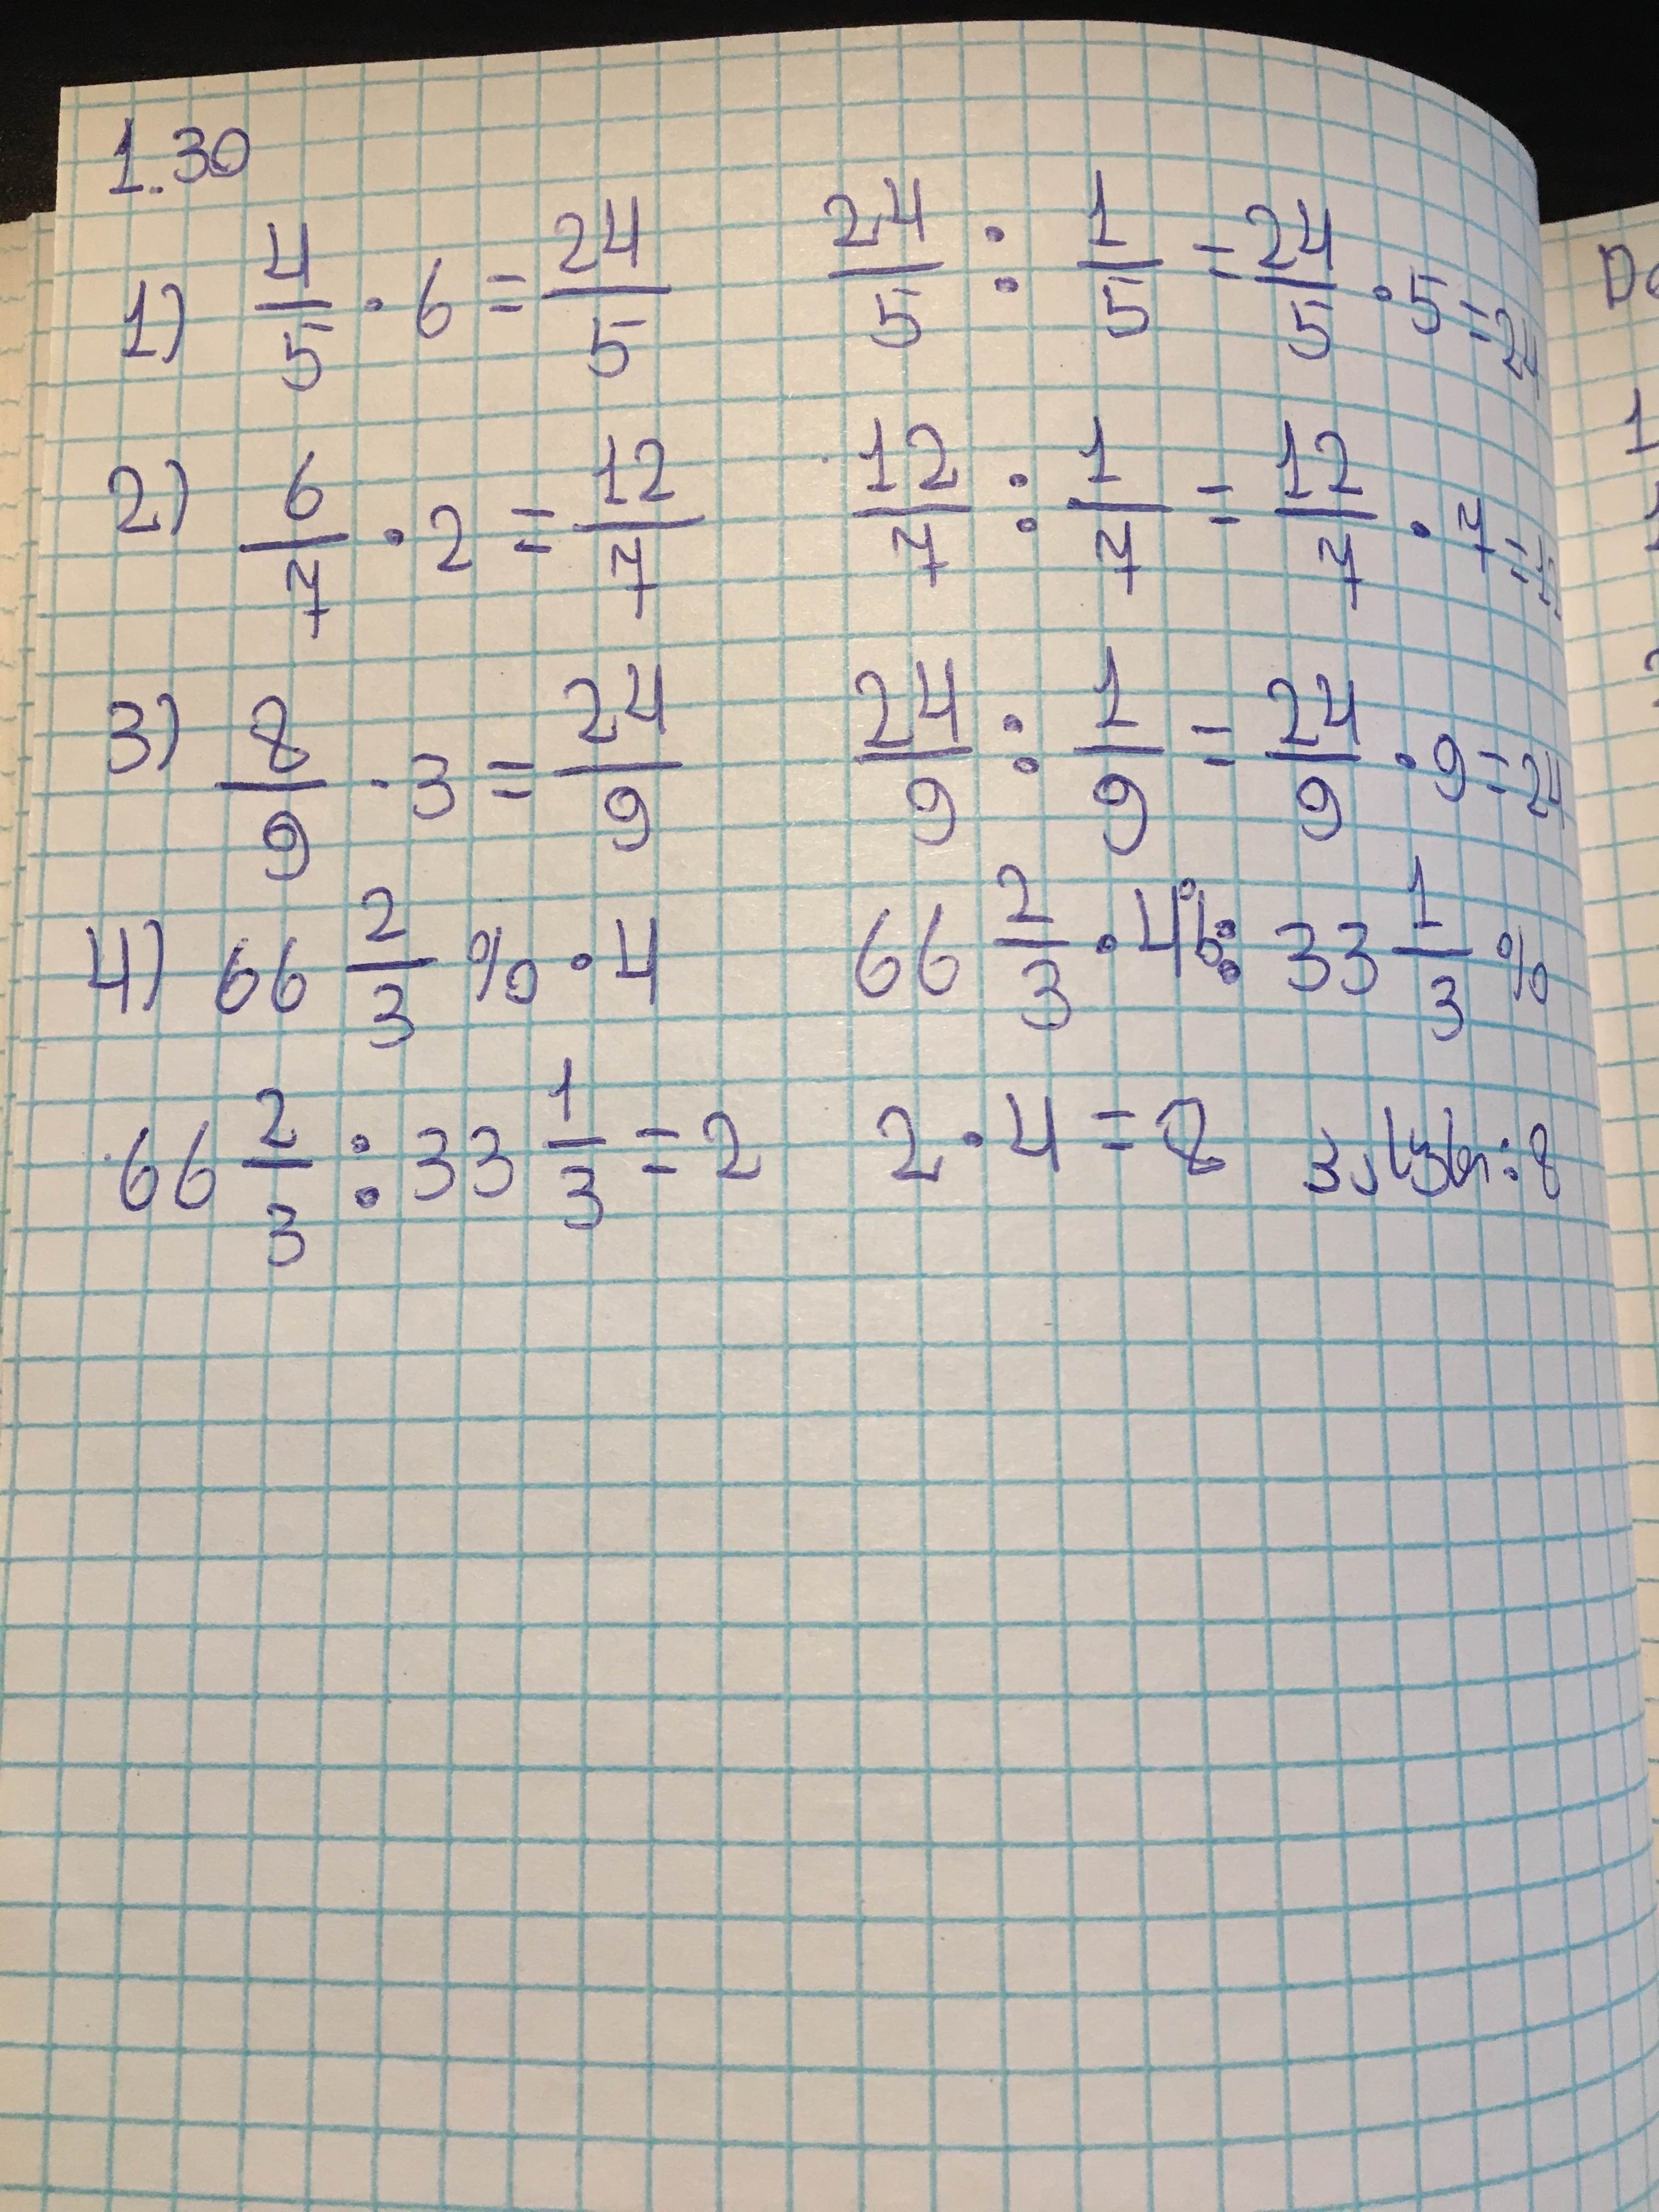 1.30
1) 4/5 · 6 = 24/5 24/5 : 1/5 = 24/5 · 5 = 24
2) 6/7 · 2 = 12/7 12/7 : 1/7 = 12/7 · 7 =
3) 8/9 · 3 = 24/9 24/9 : 1/9 = 24/9 · 9 = 24
4) 66 2/3 % · 4 66 2/3 · 4% : 33 1/3 %
66 2/3 : 33 1/3 = 2 2 · 4 = 8 : 8